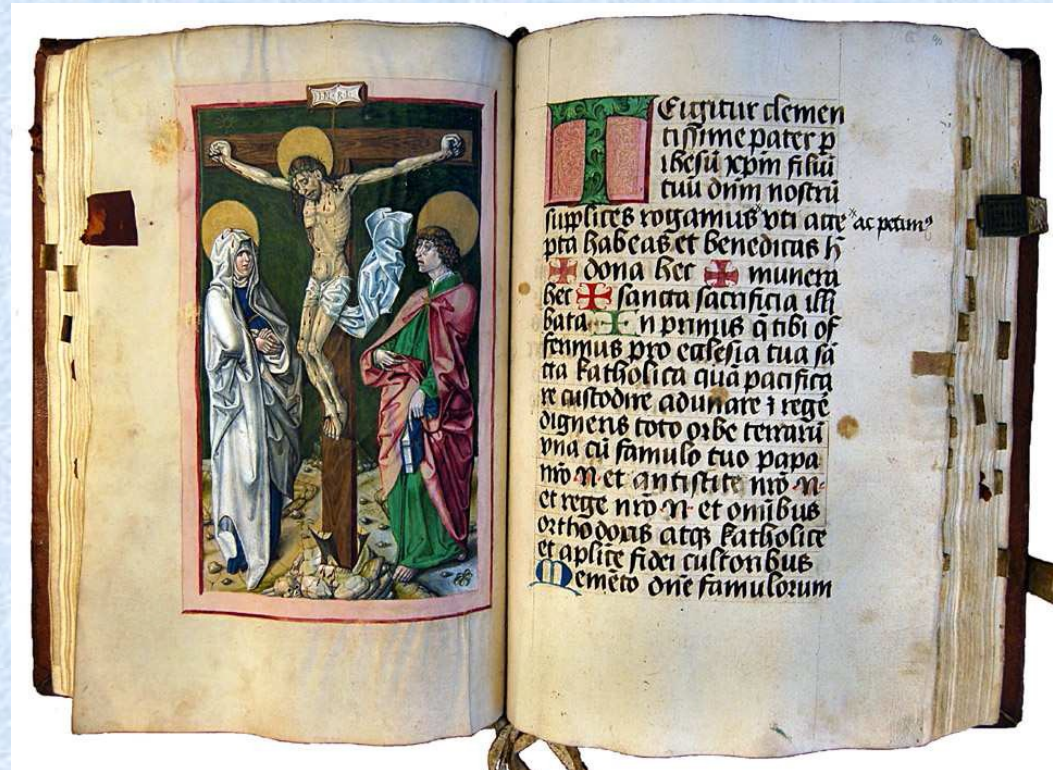 I·N·R·I
TE igitur clemen
tissime pater p̄
ihesū xp̄m filiū
tuū dn̄m nostrū
supplices rogamus ˣ vti acce ˣ ac petimꝰ
pta habeas et benedicas h̄
✠ dona hec ✠ munera
hec ✠ sancta sacrificia illi
bata In primis q̄ tibi of
ferimus pro ecclesia tua sā
cta katholica quā pacifica
re custodire adunare ⁊ regē
digneris toto orbe terrarū
vna cū famulo tuo papa
nr̄o ·N· et antistite nr̄o ·N·
et rege nr̄o ·N· et omībus
orthodoxis atqꝫ katholice
et aplice fidei cultoribus
Memēto dn̄e famulorum